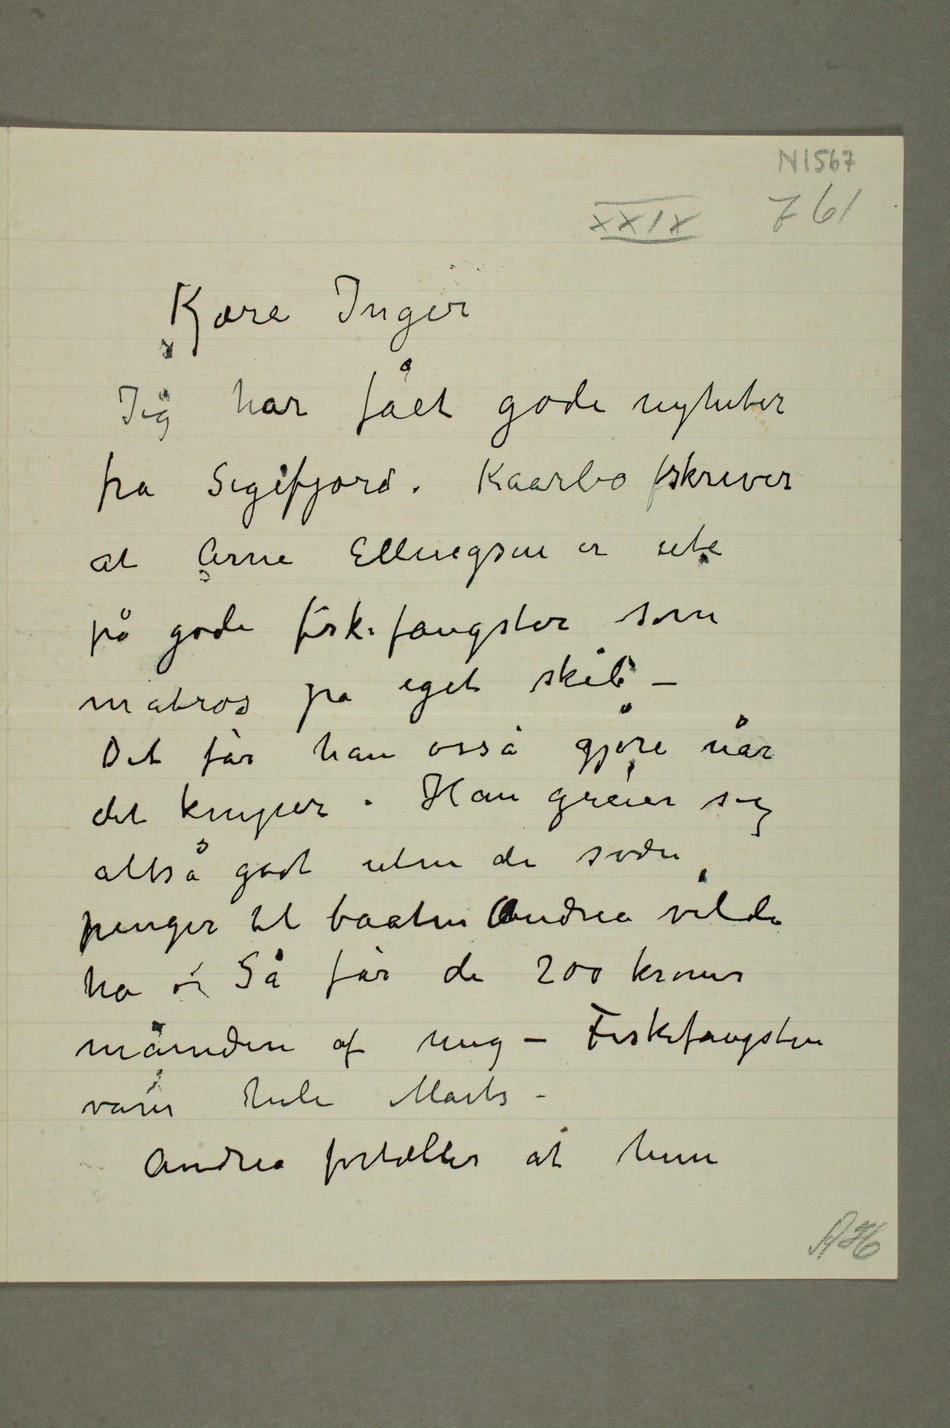 N1567
XXIX 761
Kjære Inger
Jeg har fået gode nyheter
fra Sigefjord. Kaarbø skriver
at Arne Ellingsen er ute
på gode fiskefangster som
matros på eget skib –
Det får han osså gjøre når
det kniper. Han greier sig
altså godt uten de svære
penger til baaten Andrea vilde
ha – Så får de 200 kroner
måneden af mig – Fiskefangsten
varer hele Marts –
Andrea fortæller at hun